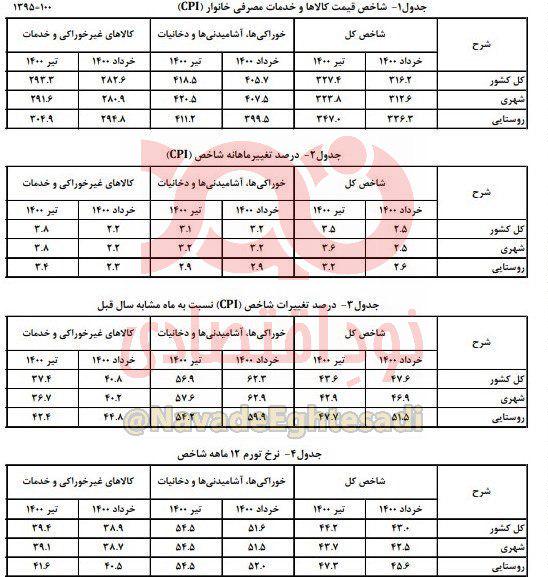 جدول۱- شاخص قیمت کالاها و خدمات مصرفی خانوار (CPI) ۱۳۹۵=۱۰۰
شرح شاخص کل خوراکی‌ها، آشامیدنی‌ها و دخانیات کالاهای غیرخوراکی و خدمات
خرداد ۱۴۰۰ تیر ۱۴۰۰ خرداد ۱۴۰۰ تیر ۱۴۰۰ خرداد ۱۴۰۰ تیر ۱۴۰۰
کل کشور ۳۱۶.۲ ۳۲۷.۴ ۴۰۵.۷ ۴۱۸.۵ ۲۸۲.۶ ۲۹۳.۳
شهری ۳۱۲.۶ ۳۲۳.۸ ۴۰۷.۵ ۴۲۰.۵ ۲۸۰.۹ ۲۹۱.۶
روستایی ۳۳۶.۳ ۳۴۷.۰ ۳۹۹.۵ ۴۱۱.۲ ۲۹۴.۸ ۳۰۴.۹
جدول۲- درصد تغییرماهانه شاخص (CPI)
شرح شاخص کل خوراکی‌ها، آشامیدنی‌ها و دخانیات کالاهای غیرخوراکی و خدمات
خرداد ۱۴۰۰ تیر ۱۴۰۰ خرداد ۱۴۰۰ تیر ۱۴۰۰ خرداد ۱۴۰۰ تیر ۱۴۰۰
کل کشور ۲.۵ ۳.۵ ۳.۲ ۳.۱ ۲.۲ ۳.۸
شهری ۲.۵ ۳.۶ ۳.۲ ۳.۲ ۲.۲ ۳.۸
روستایی ۲.۶ ۳.۲ ۲.۹ ۲.۹ ۲.۳ ۳.۴
جدول۳- درصد تغییرات شاخص (CPI) نسبت به ماه مشابه سال قبل
شرح شاخص کل خوراکی‌ها، آشامیدنی‌ها و دخانیات کالاهای غیرخوراکی و خدمات
خرداد ۱۴۰۰ تیر ۱۴۰۰ خرداد ۱۴۰۰ تیر ۱۴۰۰ خرداد ۱۴۰۰ تیر ۱۴۰۰
کل کشور ۴۷.۶ ۴۳.۶ ۶۲.۳ ۵۶.۹ ۴۰.۸ ۳۷.۴
شهری ۴۶.۹ ۴۲.۹ ۶۲.۹ ۵۷.۶ ۴۰.۲ ۳۶.۷
روستایی ۵۱.۵ ۴۷.۷ ۵۹.۹ ۵۴.۲ ۴۴.۸ ۴۲.۴
@NavadeEghtesadi
جدول۴- نرخ تورم ۱۲ ماهه شاخص
شرح شاخص کل خوراکی‌ها، آشامیدنی‌ها و دخانیات کالاهای غیرخوراکی و خدمات
خرداد ۱۴۰۰ تیر ۱۴۰۰ خرداد ۱۴۰۰ تیر ۱۴۰۰ خرداد ۱۴۰۰ تیر ۱۴۰۰
کل کشور ۴۳.۰ ۴۴.۲ ۵۱.۶ ۵۴.۵ ۳۸.۹ ۳۹.۴
شهری ۴۲.۵ ۴۳.۷ ۵۱.۵ ۵۴.۵ ۳۸.۷ ۳۹.۱
روستایی ۴۵.۶ ۴۷.۳ ۵۲.۰ ۵۴.۵ ۴۰.۵ ۴۱.۶